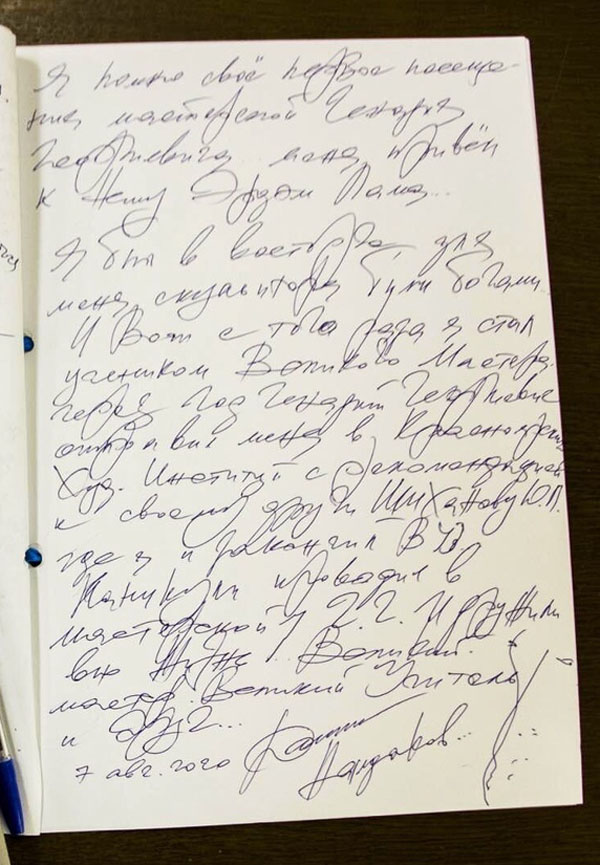 Я помню своё первое посеще-
ние мастерской Генадия
Георгиевича меня привёл
к Нему Эрдэм Лама...
Я был в восторге, для
меня скульптора были богами.
И Вот с того года я стал
учеником Великого Мастера.
через год Генадий Георгиевич
отправил меня в Красноярский
Худ. Институт с рекомендацией
к своему другу Шиханову Ю.П.
где я и закончил ВУЗ,
Каникулы проводил в
мастерской у Г.Г. И дружили
всю Жизнь... Великий
мастер. Великий Учитель
и друг...
7 авг. 2020 Намдаков...